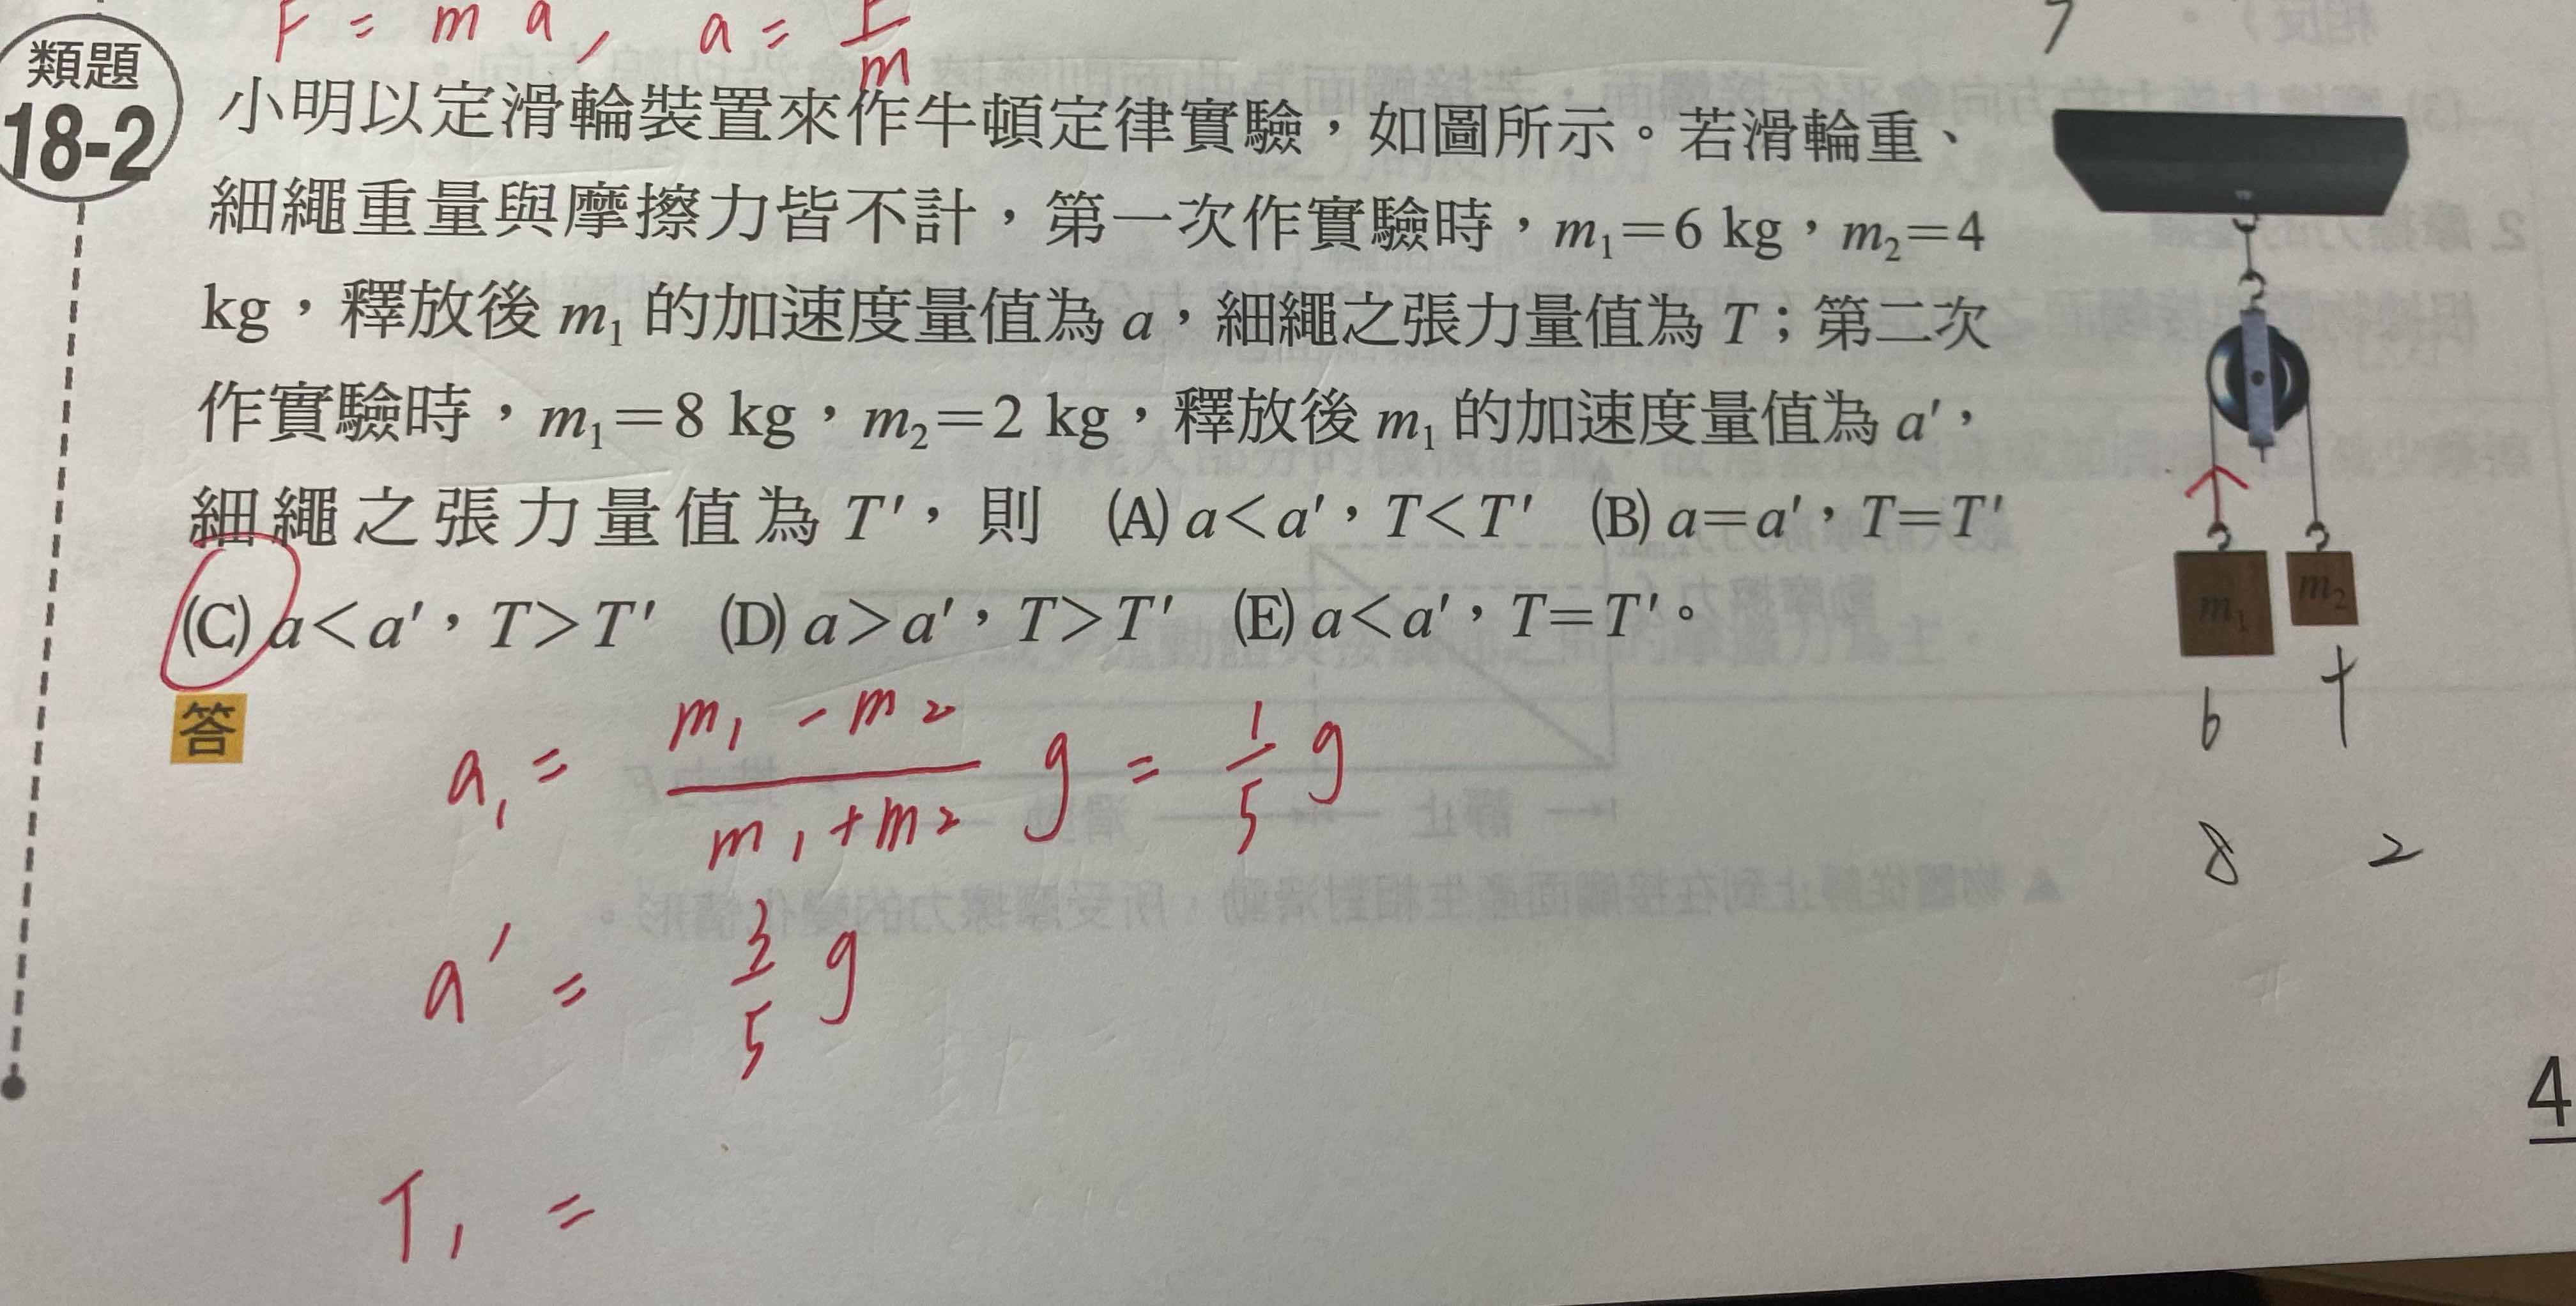 F = m a , a = F/m
7
類題
18-2
小明以定滑輪裝置來作牛頓定律實驗，如圖所示。若滑輪重、
細繩重量與摩擦力皆不計，第一次作實驗時，m₁=6 kg，m₂=4
kg，釋放後 m₁ 的加速度量值為 a，細繩之張力量值為 T；第二次
作實驗時，m₁=8 kg，m₂=2 kg，釋放後 m₁ 的加速度量值為 a′，
細繩之張力量值為 T′，則 (A) a<a′，T<T′ (B) a=a′，T=T′
(C) a<a′，T>T′ (D) a>a′，T>T′ (E) a<a′，T=T′。
m₁ m₂
6 4
8 2
答
a₁ = (m₁ - m₂)/(m₁ + m₂) g = 1/5 g
a′ = 3/5 g
T₁ =
4